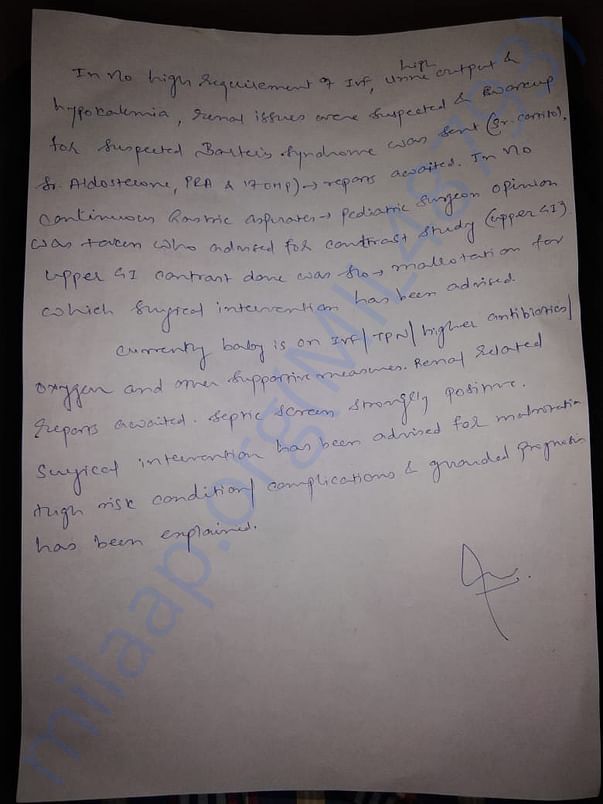 In v/o high requirement of IVF, high urine output &
hypokalemia, renal issues were suspected & workup
for suspected Barter's syndrome was sent (Sr. cortisol,
Sr. Aldosterone, PRA & 17 OHP) → reports awaited. In v/o
continuous Gastric aspirates → Pediatric surgeon opinion
was taken who advised for contrast study (upper GI)
upper GI contrast done was s/o → malrotation for
which surgical intervention has been advised.
Currently baby is on IVF/TPN/higher antibiotics/
oxygen and other supportive measures. Renal related
reports awaited. Septic screen strongly positive.
Surgical intervention has been advised for malrotation
High risk condition/complications & guarded prognosis
has been explained.
milaap.org(MIL487